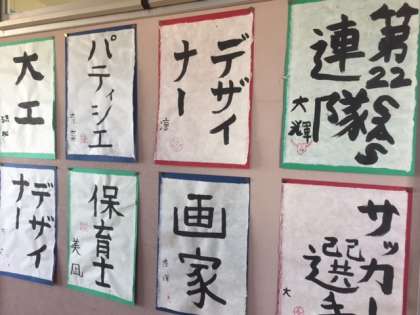 大工
パティシエ
デザイ
ナー
淳
第22SAS
連隊
大輝
デザイ
ナー
保育士
英凪
画家
サッカー
選手
大